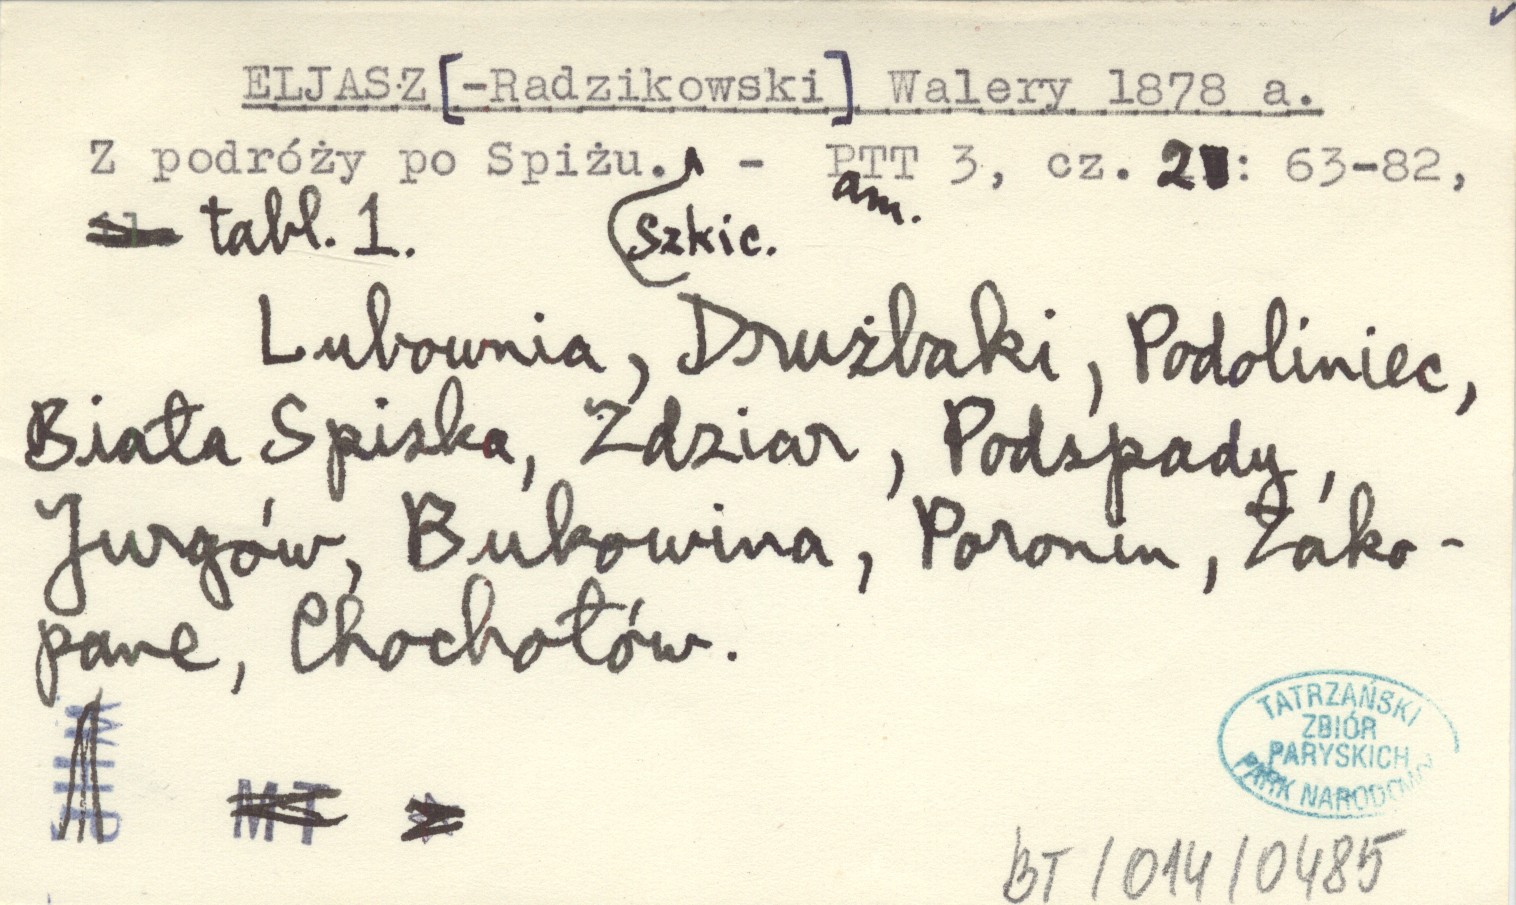 ELJASZ[-Radzikowski] Walery 1878 a.
Z podróży po Spiżu. - PTT 3, cz. 2: 63-82,
am.
tabl. 1. Szkic.
Lubownia, Drużbaki, Podoliniec,
Biała Spiska, Zdziar, Podspady,
Jurgów, Bukowina, Poronin, Zako-
pane, Chochołów.
TATRZAŃSKI
ZBIÓR
PARYSKICH
PARK NARODOWY
MT
BT/014/0485